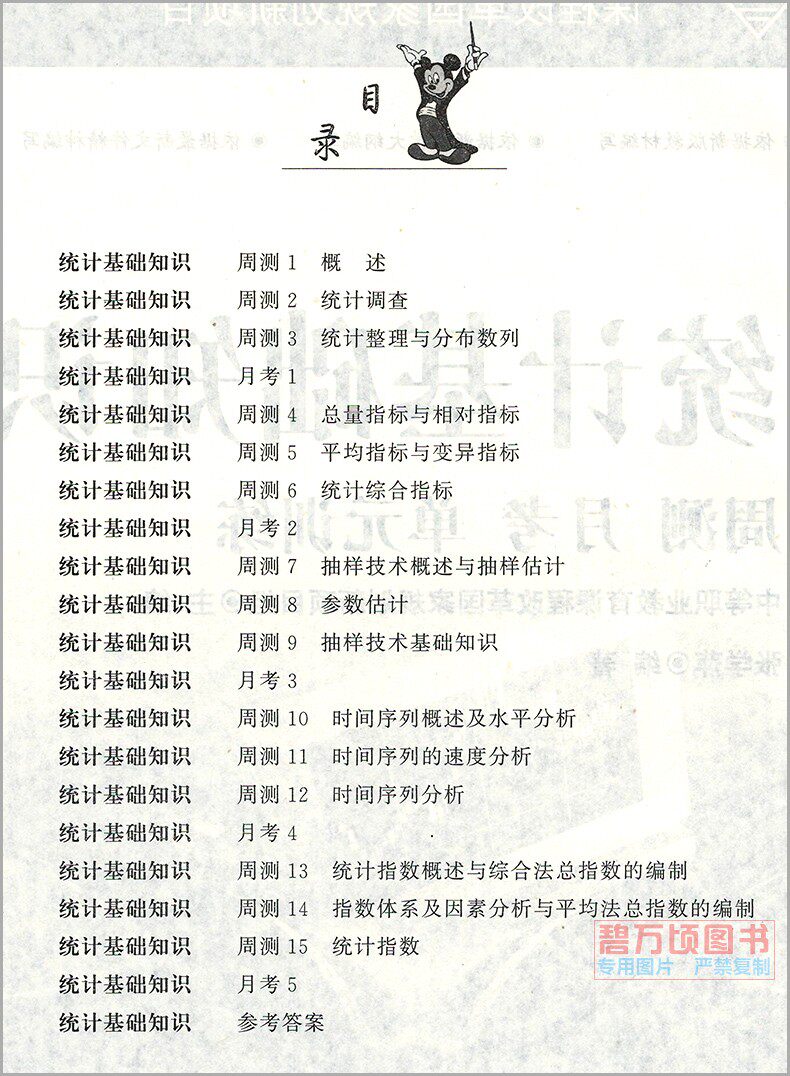 目
录
统计基础知识 周测 1 概 述
统计基础知识 周测 2 统计调查
统计基础知识 周测 3 统计整理与分布数列
统计基础知识 月考 1
统计基础知识 周测 4 总量指标与相对指标
统计基础知识 周测 5 平均指标与变异指标
统计基础知识 周测 6 统计综合指标
统计基础知识 月考 2
统计基础知识 周测 7 抽样技术概述与抽样估计
统计基础知识 周测 8 参数估计
统计基础知识 周测 9 抽样技术基础知识
统计基础知识 月考 3
统计基础知识 周测 10 时间序列概述及水平分析
统计基础知识 周测 11 时间序列的速度分析
统计基础知识 周测 12 时间序列分析
统计基础知识 月考 4
统计基础知识 周测 13 统计指数概述与综合法总指数的编制
统计基础知识 周测 14 指数体系及因素分析与平均法总指数的编制
统计基础知识 周测 15 统计指数
统计基础知识 月考 5
统计基础知识 参考答案
碧万顷图书
专用图片 严禁复制